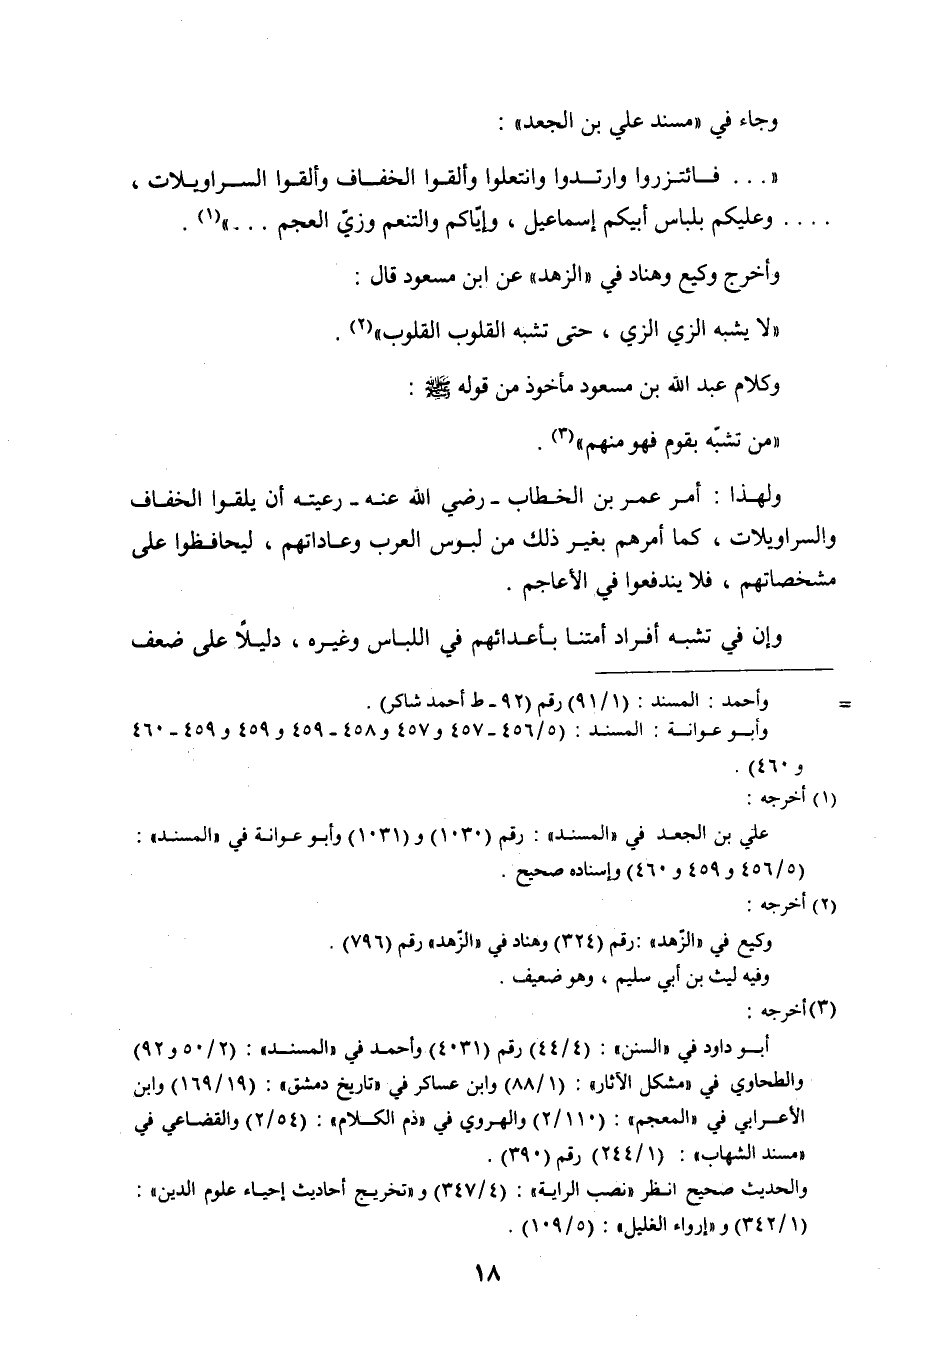 وجاء في «مسند علي بن الجعد» :
« . . . فـائتـزروا وارتـدوا وانتعلوا وألقـوا الخفـاف وألقـوا السـراويـلات ،
. . . . وعليكم بلباس أبيكم إسماعيل ، وإيّاكم والتنعم وزيّ العجم . . . »(١) .
وأخرج وكيع وهناد في «الزهد» عن ابن مسعود قال :
«لا يشبه الزي الزي ، حتى تشبه القلوب القلوب»(٢) .
وكلام عبد الله بن مسعود مأخوذ من قوله ﷺ :
«من تشبّه بقوم فهو منهم»(٣) .
ولهـذا : أمـر عمـر بن الخـطاب ـ رضي الله عنـه ـ رعيتـه أن يلقـوا الخفـاف
والسراويلات ، كما أمرهم بغير ذلك من لبـوس العرب وعـاداتهم ، ليحافـظوا على
مشخصاتهم ، فلا يندفعوا في الأعاجم .
وإن في تشبـه أفـراد أمتنـا بـأعـدائهـم في اللبـاس وغيـره ، دليـلاً على ضعف
= وأحمد : المسند : (٩١/١) رقم (٩٢ ـ ط أحمد شاكر) .
وأبـو عـوانـة : المسنـد : (٤٥٦/٥ ـ ٤٥٧ و ٤٥٧ و ٤٥٨ ـ ٤٥٩ و ٤٥٩ و ٤٥٩ ـ ٤٦٠
و ٤٦٠) .
(١) أخرجه :
علي بن الجعـد في «المسند» : رقم (١٠٣٠) و (١٠٣١) وأبـو عوانـة في «المسنـد» :
(٤٥٦/٥ و ٤٥٩ و ٤٦٠) وإسناده صحيح .
(٢) أخرجه :
وكيع في «الزّهد» :رقم (٣٢٤) وهناد في «الزّهد» رقم (٧٩٦) .
وفيه ليث بن أبي سليم ، وهو ضعيف .
(٣)أخرجه :
أبـو داود في «السنن» : (٤٤/٤) رقم (٤٠٣١) وأحمـد في «المسنـد» : (٥٠/٢ و ٩٢)
والطحاوي في «مشكل الآثار» : (٨٨/١) وابن عساكر في «تاريخ دمشق» : (١٦٩/١٩) وابن
الأعـرابي في «المعجم» : (٢/١١٠) والهـروي في «ذم الكـلام» : (٢/٥٤) والقضـاعي في
«مسند الشهاب» : (٢٤٤/١) رقم (٣٩٠) .
والحديث صحيح انـظر «نصب الراية» : (٣٤٧/٤) و «تخريج أحاديث إحيـاء علوم الدين» :
(٣٤٢/١) و «إرواء الغليل» : (١٠٩/٥) .
١٨